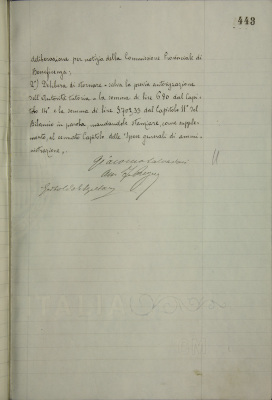 443
deliberazione per notizia della Commissione Provinciale di
Beneficenza;
2°) Delibera di stornare - salva la previa autorizzazione
dell'Autorità tutoria - la somma di lire 690 dal Capi-
tolo 14° e la somma di lire 3707,33 dal Capitolo 11° del
Bilancio in parola, mandandole stanziare, come supple-
mento, al Capitolo delle "Spese generali di ammi-
nistrazione,,.
Giacomo